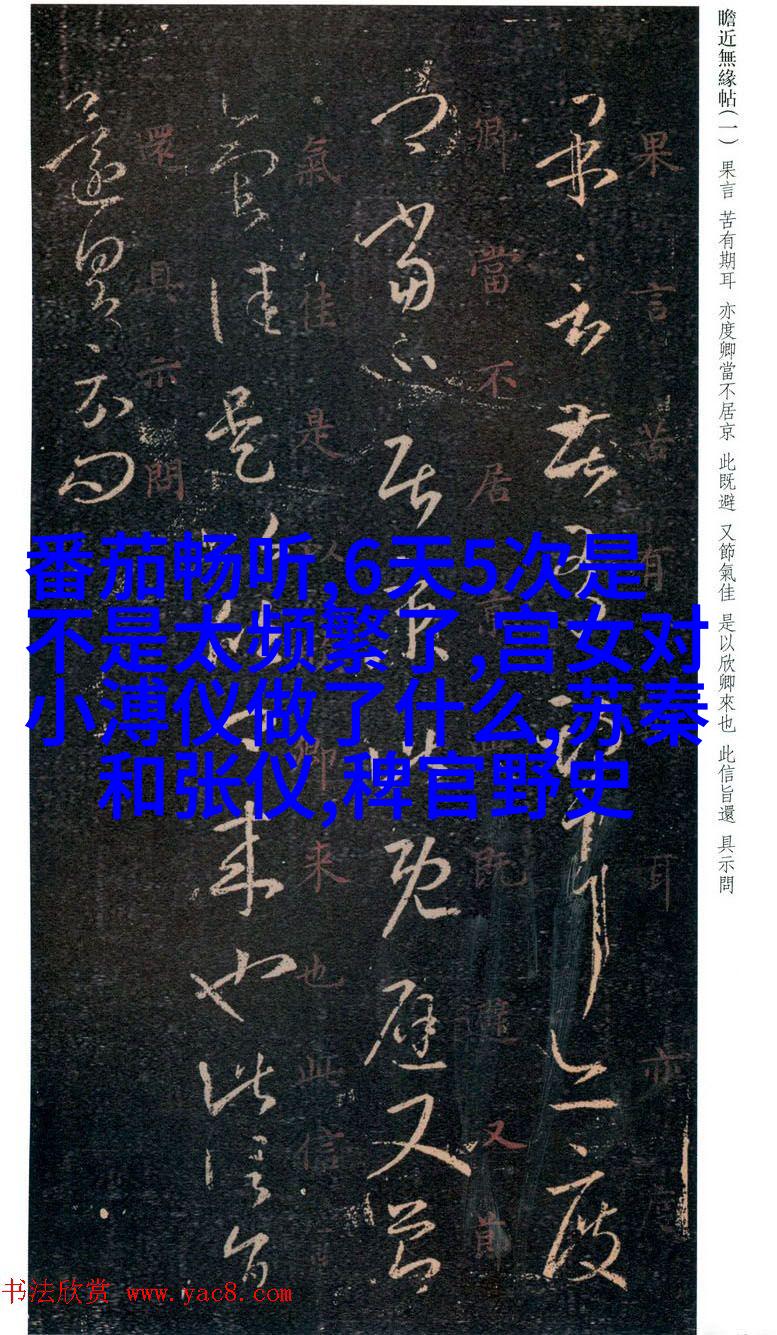 瞻近無緣帖(一) 果言 苦有期耳 亦度卿當不居京 此既避 又節氣佳 是以欣卿來也 此信旨還 具示問
果言苦有期耳亦度
卿當不居京此既避又節
氣佳是以欣卿來也此信旨
還具示問
番茄畅听,6天5次是
不是太频繁了,宫女对
小溥仪做了什么,苏秦
和张仪,稗官野史
书法欣赏 www.yac8.com